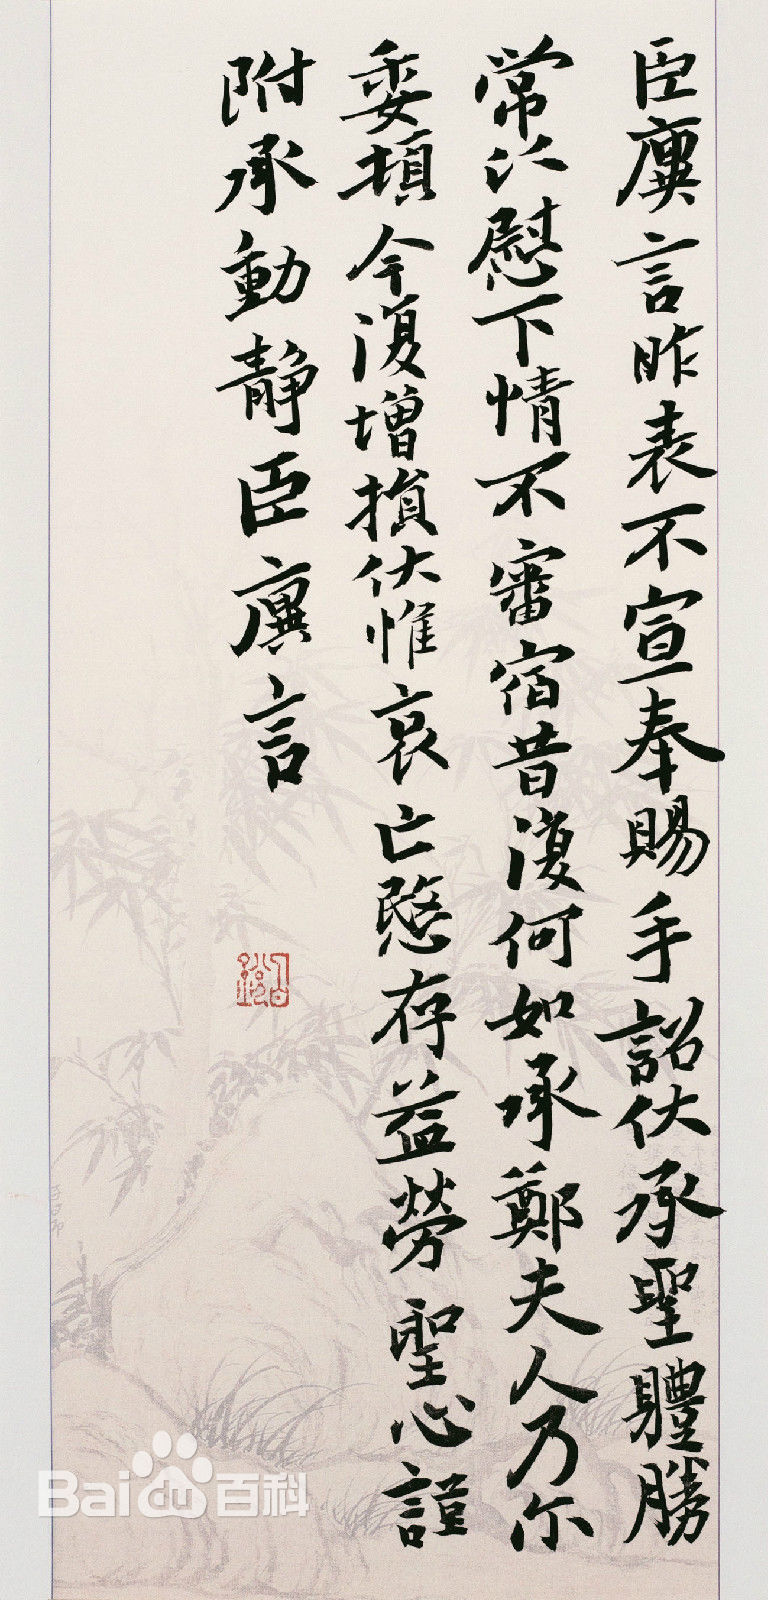 臣廙言昨表不宣奉賜手詔伏承聖體勝
常以慰下情不審宿昔復何如承鄭夫人乃尔
委頓今復增損伏惟哀亡愍存益勞聖心謹
附承動靜臣廙言
Bai du 百科